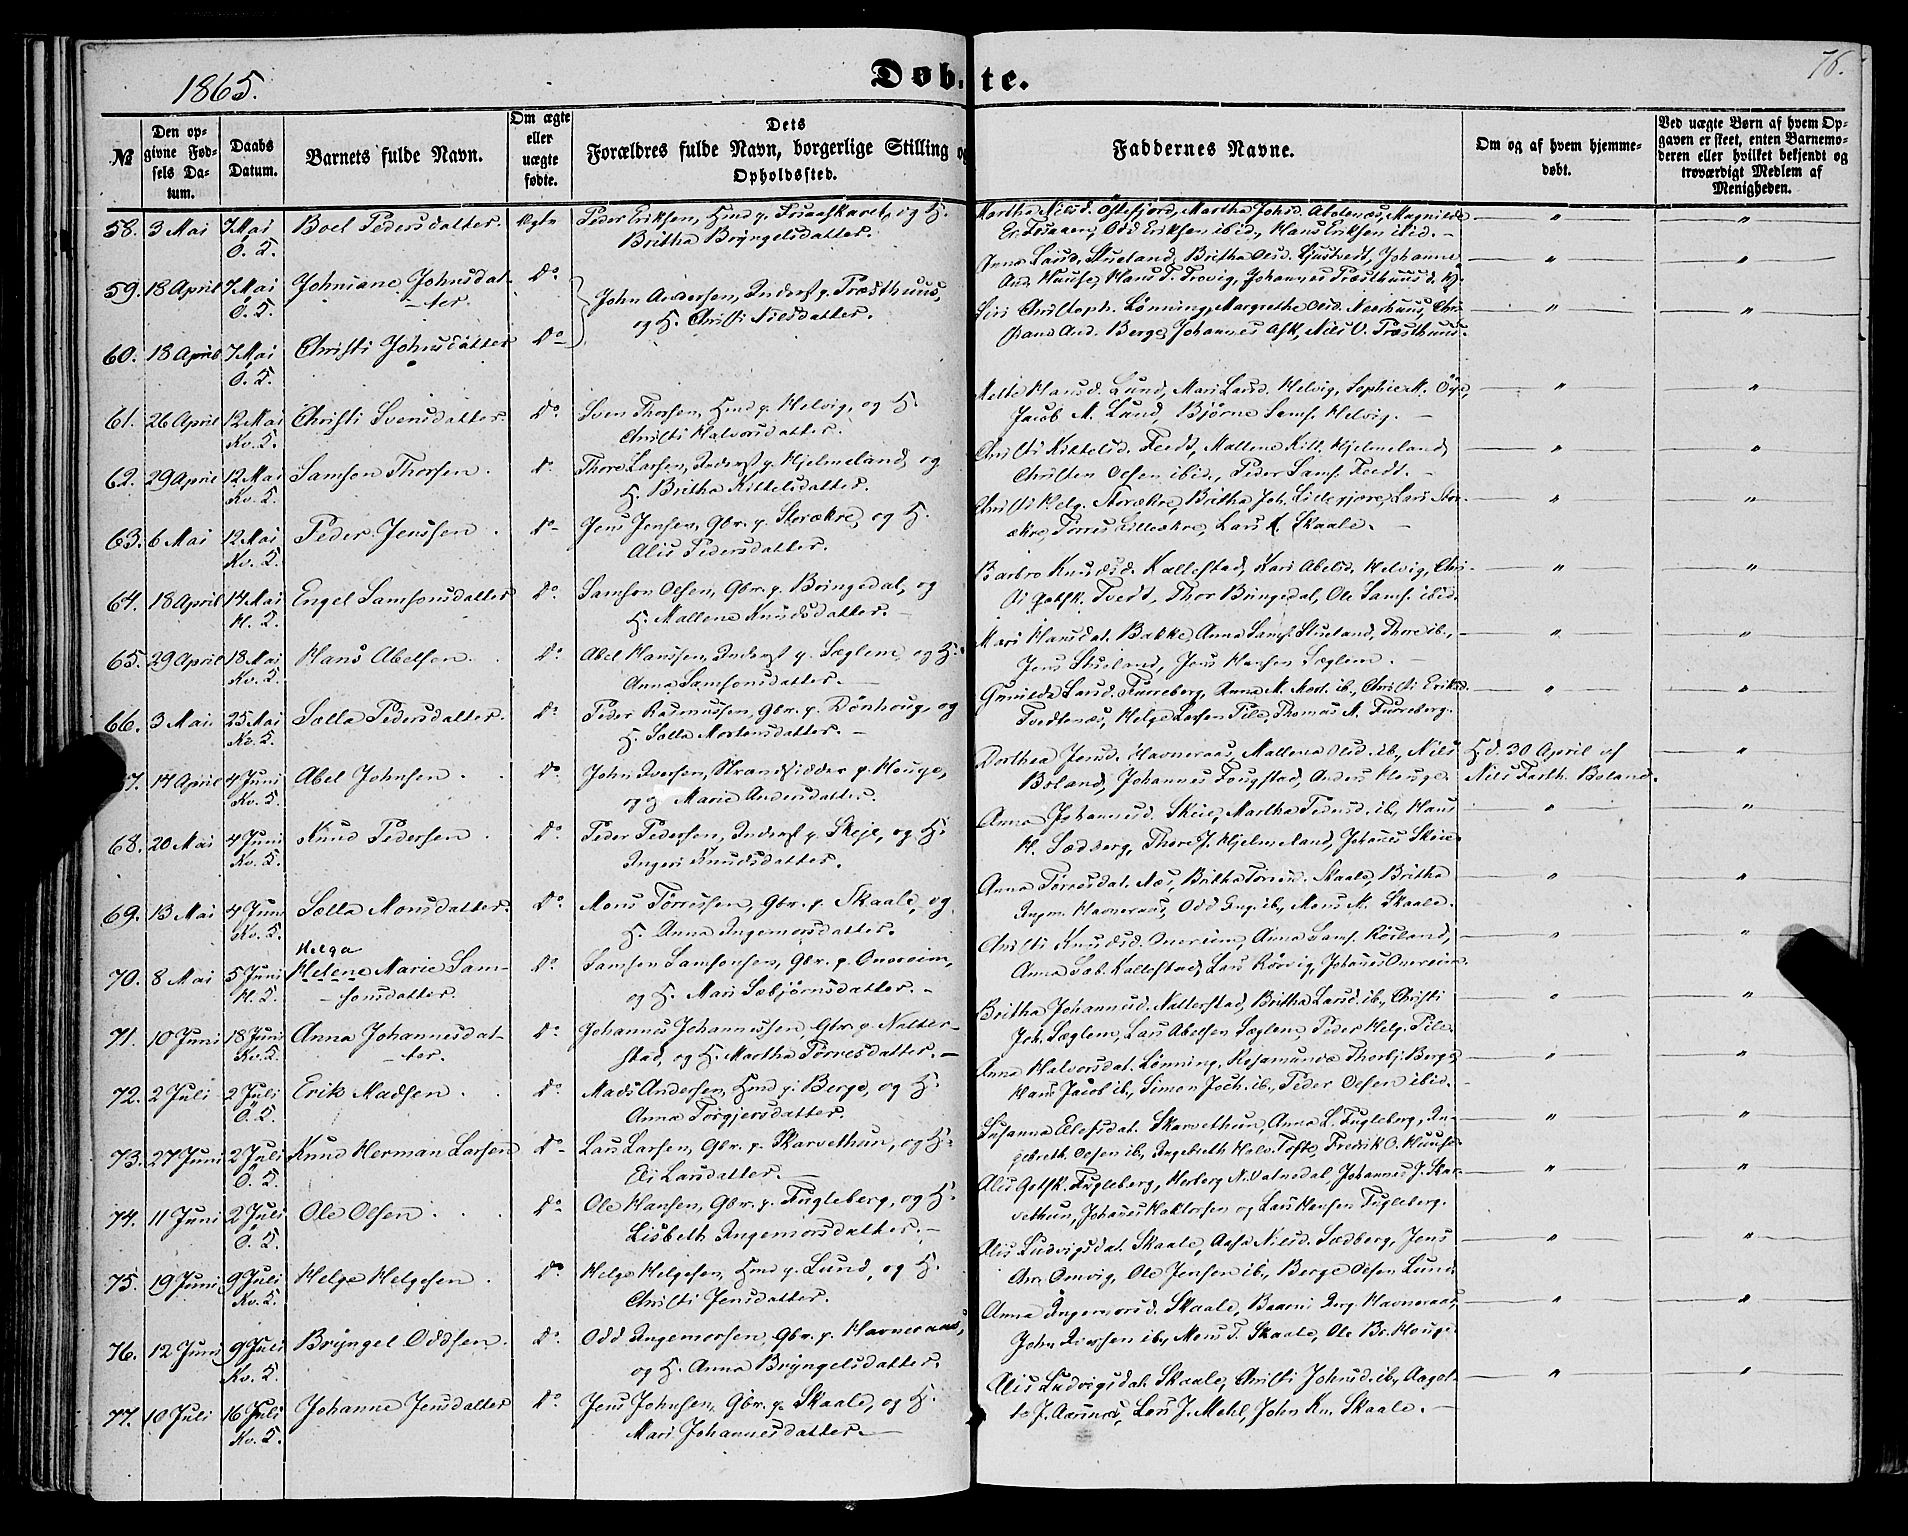 1865.
Døbte.
76.
№
Den opgivne Fødsels Datum.
Daabs Datum.
Barnets fulde Navn.
Om ægte eller uægte fødte.
Dets Forældres fulde Navn, borgerlige Stilling og Opholdssted.
Faddernes Navne.
Om og af hvem hjemmedøbt.
Ved uægte Børn af hvem Opgaven er skeet, enten Barnemoderen eller hvilket bekjendt og troværdigt Medlem af Menigheden.
58. 3 Mai 7 Mai Boel Pedersdatter. Ægte Peder Eriksen, Hmd p. og H.
Ö. K. Britha Brÿngelsdatter.
Martha Nilsd. Östefjord, Martha Johsd. Magnilde
Odd Eriksen ibid., Hans Eriksen ibid.
59. 18 April 7 Mai Johniane Johnsdat- Do John Andersen, Inderst p. Træsthuus,
Ö. K. ter. og H. Christi Nilsdatter.
Anna Larsd. Stueland, Britha Olsd. Johanne
And. Huuse, Hans T. Trovig, Johannes Træsthuus
60. 18 April 7 Mai Christi Johnsdatter Do
Ö. K.
Siri Christoph. Lönning, Margrethe Olsd. Chri-
And. Berge, Johannes Ask, Nils O. Træsthuus.
61. 26 April 12 Mai Christi Svensdatter Do Sven Thorsen, Hmd p. Helvig, og H.
Kv. K. Christi Halvorsdatter.
Mette Hansd. Lund, Mari Larsd. Helvig, Sophie M. Öye,
Jacob M. Lund, Björne Sams. Helvig.
62. 29 April 12 Mai Samson Thorsen. Do Thore Larsen, Inderst p. Hjelmeland, og
Kv. K. H. Britha Kittelsdatter.
Christi Kittelsd. Tvedt, Mallene Kitt. Hjelmeland,
Christen Olsen ibid., Peder Sams. Tvedt.
63. 6 Mai 12 Mai Peder Jenssen. Do Jens Jensen, Gbr. p. Storækre, og H.
Kv. K. Alis Pedersdatter.
Christi Helg. Storækre, Britha Joh. Lars Stor-
ækre, Torres Lilleækre, Lars K. Skaale.
64. 18 April 14 Mai Engel Samsonsdatter Do Samson Olsen, Gbr. p. Bringedal, og
H. K. H. Mallene Knudsdatter.
Barbro Knudsd. Kallestad, Kari Abelsd. Helvig, Chri-
Gotsk. Tvedt, Thor Bringedal, Ole Sams. ibid.
65. 29 April 18 Mai Hans Abelsen. Do Abel Hanssen, Inderst p. Sæglem, og H.
Kv. K. Anna Samsonsdatter.
Mari Hansdat. Bakke, Anna Sams. Stueland, Thore ib.,
Jens Stueland, Jens Hansen Sæglem.
66. 3 Mai 25 Mai Salla Pedersdatter. Do Peder Rasmussen, Gbr. p. Dönhoug, og
Kv. K. H. Salla Mortensdatter.
Gunilda Larsd. Furreberg, Anna M. Mort. ib., Christi Eriksd.
Tvedtenæs, Helge Larsen Tile, Thomas M. Furreberg.
67. 14 April 4 Juni Abel Johnsen. Do John Iversen, Strandsidder p. Houge,
Kv. K. og H. Marie Andersdatter.
Dorthea Jensd. Havneraas, Mallena Olsd. ib., Nils
Boland, Johannes Fougstad, Anders Houge.
Hd. 30 April af
Nils Farth. Boland.
68. 20 Mai 4 Juni Knud Pedersen. Do Peder Pedersen, Inderst p. Skeje, og H.
Kv. K. Ingeri Knudsdatter.
Anna Johannesd. Skeie, Martha Pedersd. ib., Hans
H. Sædberg, Thore J. Hjelmeland, Johanes Skeie.
69. 13 Mai 4 Juni Salla Monsdatter. Do Mons Torressen, Gbr. p. Skaale, og
Kv. K. H. Anna Ingemorsdatter.
Anna Torresdat. Næs, Britha Torresd. Skaale, Britha
Ingm. Havneraas, Odd Ing. ib., Mons M. Skaale.
Helga
70. 8 Mai 5 Juni Helene Marie Sam- Do Samson Samsonsen, Gbr. p. Onereim,
H. K. sonsdatter. og H. Mari Sæbjörnsdatter.
Christi Knudsd. Onereim, Anna Sams. Röiland,
Anna Sab. Kallestad, Lars Rörvig, Johanes Onereim.
71. 10 Juni 18 Juni Anna Johannesdat- Do Johannes Johannessen Gbr. p. Natter-
Kv. K. ter. stad, og H. Martha Torresdatter.
Britha Johannesd. Natterstad, Britha Larsd. ib., Christi
Joh. Sæglem, Lars Abelsen Sæglem, Peder Helg. Tile.
72. 2 Juli 2 Juli Erik Madsen. Do Mads Andersen, Hmd p. Berge, og H.
Ö. K. Anna Torgjersdatter.
Anna Halvorsdat. Lönning, Rosamunda Thorbj. Berge,
Hans Jacob ib., Simon Joch. ib., Peder Olsen ibid.
73. 27 Juni 2 Juli Knud Herman Larsen Do Lars Larsen, Gbr. p. Skarvethun, og H.
Ö. K. Eli Larsdatter.
Susanna Elefsdat. Skarvethun, Anna L. Fugleberg, In-
gebreth. Olsen ib., Ingebreth Halv. Tofte, Fredrik O. Huuse.
74. 11 Juni 2 Juli Ole Olsen. Do Ole Hansen, Gbr. p. Fugleberg, og H.
Ö. K. Lisbeth Ingemorsdatter.
Alis Gotsk. Fugleberg, Herborg N. Vatnedal, Johannes J. Skar-
vethun, Johanes Haktorsen og Lars Hansen Fugleberg.
75. 19 Juni 9 Juli Helge Helgesen. Do Helge Helgesen, Hmd p. Lund, og H.
Kv. K. Christi Jensdatter.
Alis Ludvigsdat. Skaale, Aasa Nilsd. Sædberg, Jens
Chr. Omvig, Ole Jensen ib., Berge Olsen Lund.
76. 12 Juni 9 Juli Brÿngel Oddsen. Do Odd Ingemorsen, Gbr. p. Havneraas,
Kv. K. og H. Anna Brÿngelsdatter.
Anna Ingemorsd. Skaale, Baarni Ing. Havneraas,
John Iversen ib., Mons T. Skaale, Ole Br. Houge.
77. 10 Juli 16 Juli Johanne Jensdatter Do Jens Johnsen, Gbr. p. Skaale, og H.
Kv. K. Mari Johannesdatter.
Alis Ludvigsdat. Skaale, Christi Johnsd. ib., Aagot-
te J. Aarsnæs, Lars J. Mehl, John Kn. Skaale.